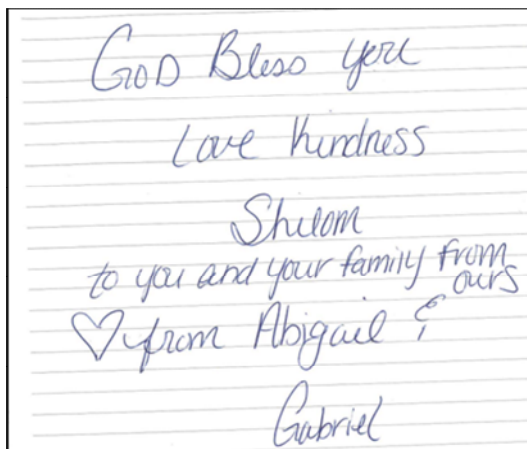 GOD Bless you
Love Kindness
Shilom
to you and your family from
ours
♡ from Abigail &
Gabriel